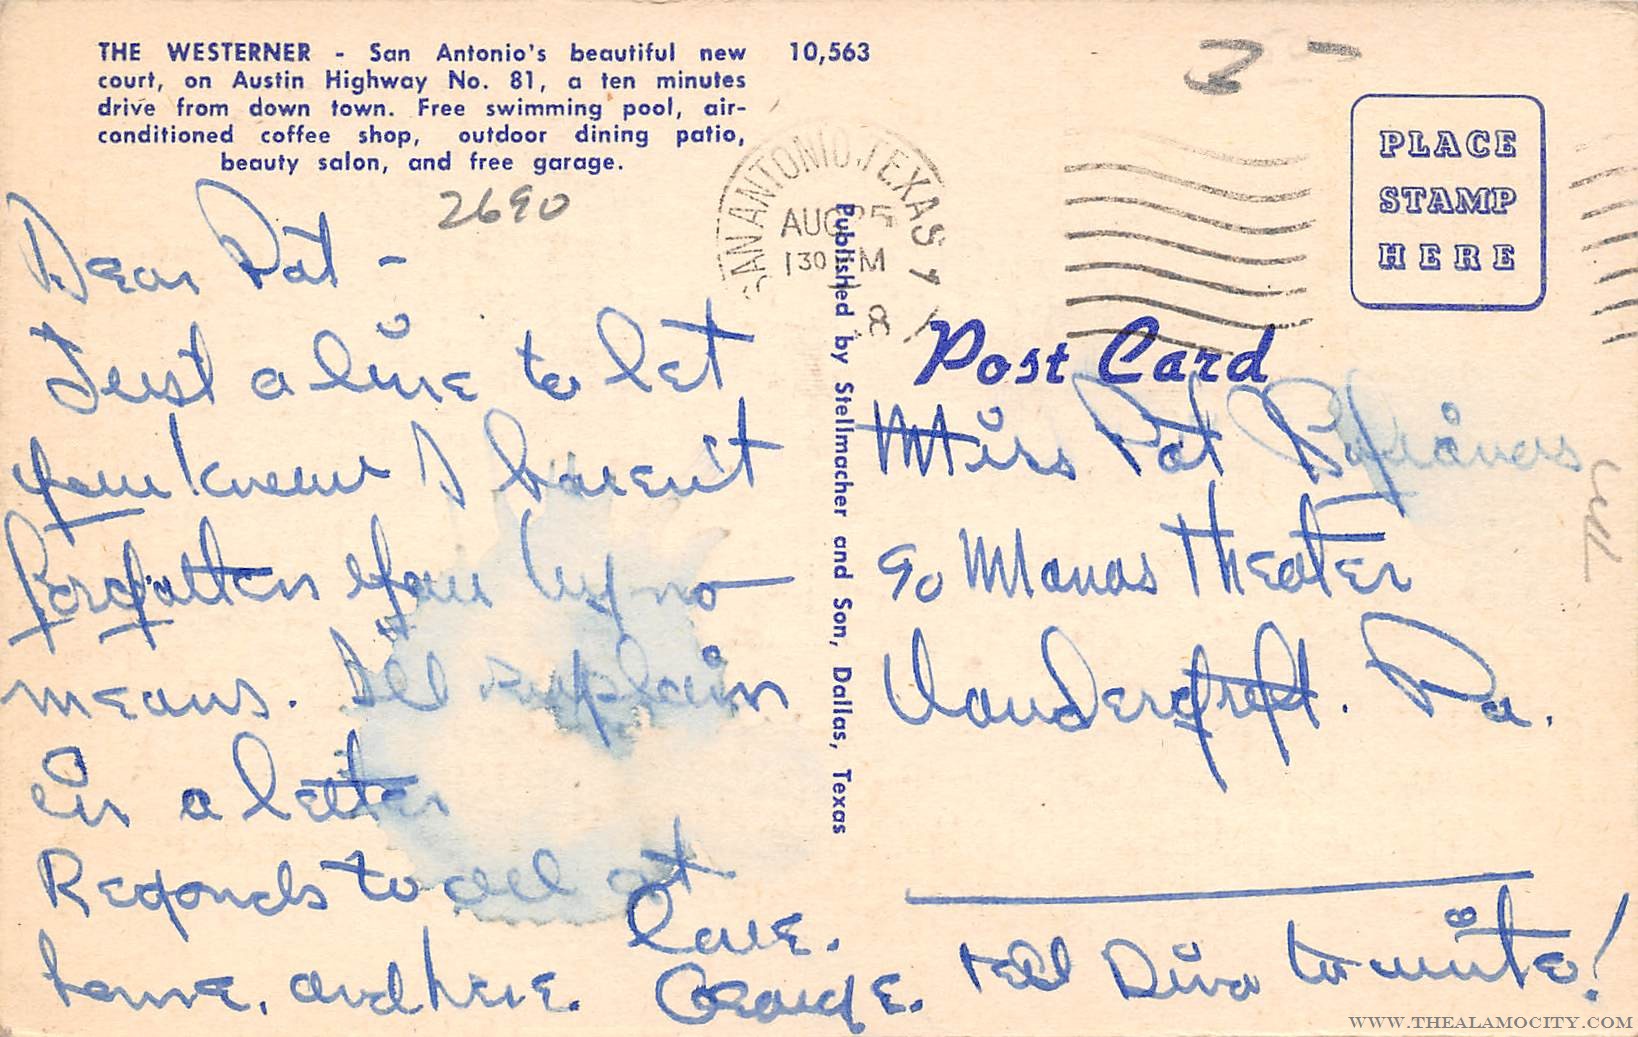 THE WESTERNER - San Antonio's beautiful new
court, on Austin Highway No. 81, a ten minutes
drive from down town. Free swimming pool, air-
conditioned coffee shop, outdoor dining patio,
beauty salon, and free garage.
10,563
2690
SAN ANTONIO, TEXAS
AUG 25
130 PM
8
PLACE
STAMP
HERE
Post Card
Published by Stellmacher and Son, Dallas, Texas
Dear Pat -
Just a line to let
you know I haven't
forgotten you by no
means. I'll explain
in a letter
Regards to all at
home, and here.
Love.
George.
Miss Pat
c/o Manos Theater
Vandergrift. Pa.
tell Dino to write!
WWW.THEALAMOCITY.COM